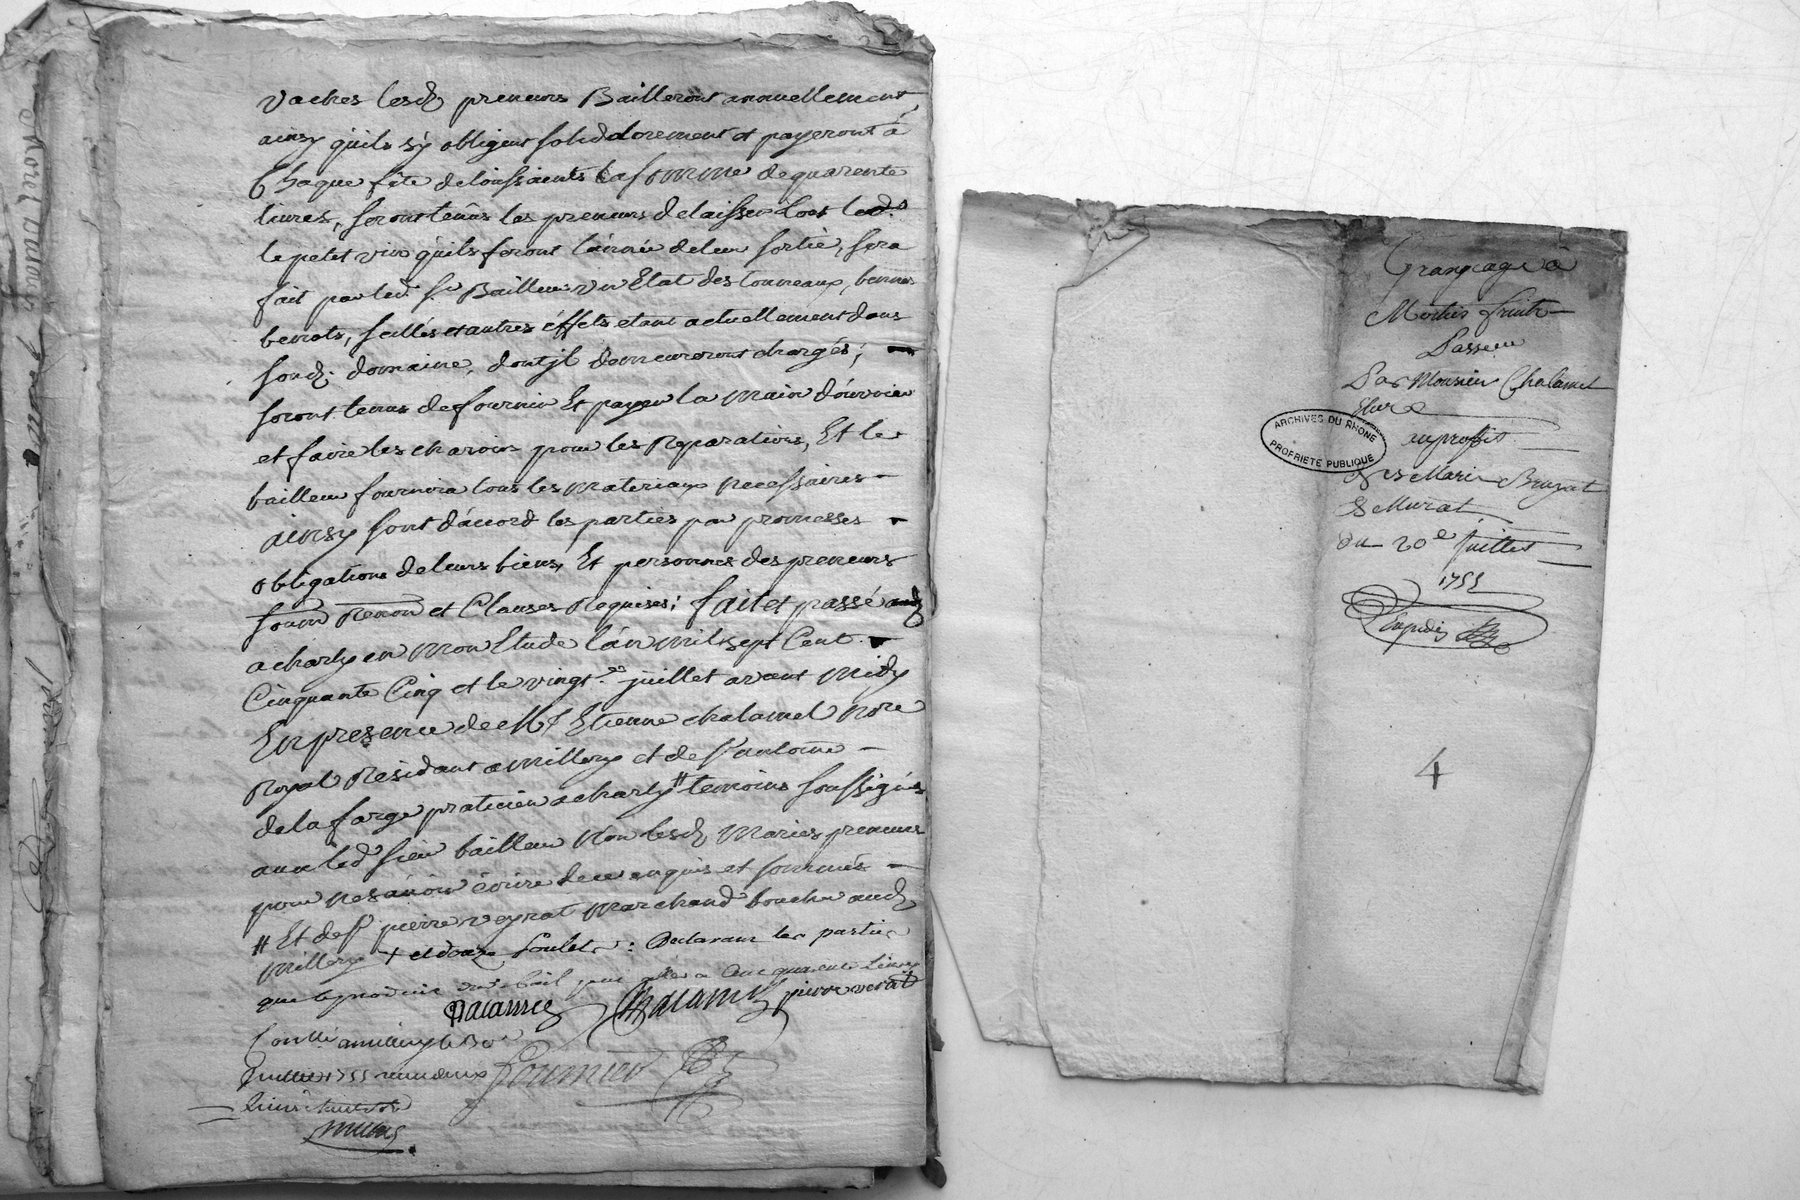 Vaches lesd. preneurs Bailleront annuellement,
ainsy qu'ils s'y obligent solidairement et payeront à
Chaque fête de toussaints la somme de quarente
livres, seront tenus les preneurs de laisser
le petit vin qu'ils feront l'année de leur sortie, sera
fait par led. Sr Bailleur un Etat des tonneaux, bennes
benots, seilles et autres éffets etant actuellement dans
sond. domaine, dont jl demeureront chargés;
seront tenus de fournir Et payer la main d'ouvrier
et faire les charois pour les Reparations, Et le
bailleur fournira tous les materiaux necessaires
ainsy sont d'accord les parties par promesses
obligations de leurs biens, Et personnes des preneurs
soum Renon et Clauses Requises; fait et passé
a charly en mon Etude l'an mil sept Cent
Cinquante Cinq et le vingt juillet avant midy
En presence de Me Etienne chalamel nore
Royal Residant a millery et de Sr antoine
de la farge praticien a charly # temoins soussignés
avec led. sieur bailleur Non lesd. Mariés preneurs
pour ne sçavoir écrire de ce enquis et sommés
# Et de Sr pierre veyrat marchand boucher aud.
Millery + et douze poulets: Declarant les parties
que le produit dud. bail peut aller a Cinquante Livres
Chalamel pierre verat
Conllé a millery le 30e
Juillet 1755
Fournier
Grangeage à
Moitié fruits
Passé
Par Monsieur Chalamel
Curé
au proffit
des Maries Bruyat
Et Murat
du 20e Juillet
1755
ARCHIVES DU RHONE
PROPRIETE PUBLIQUE
4